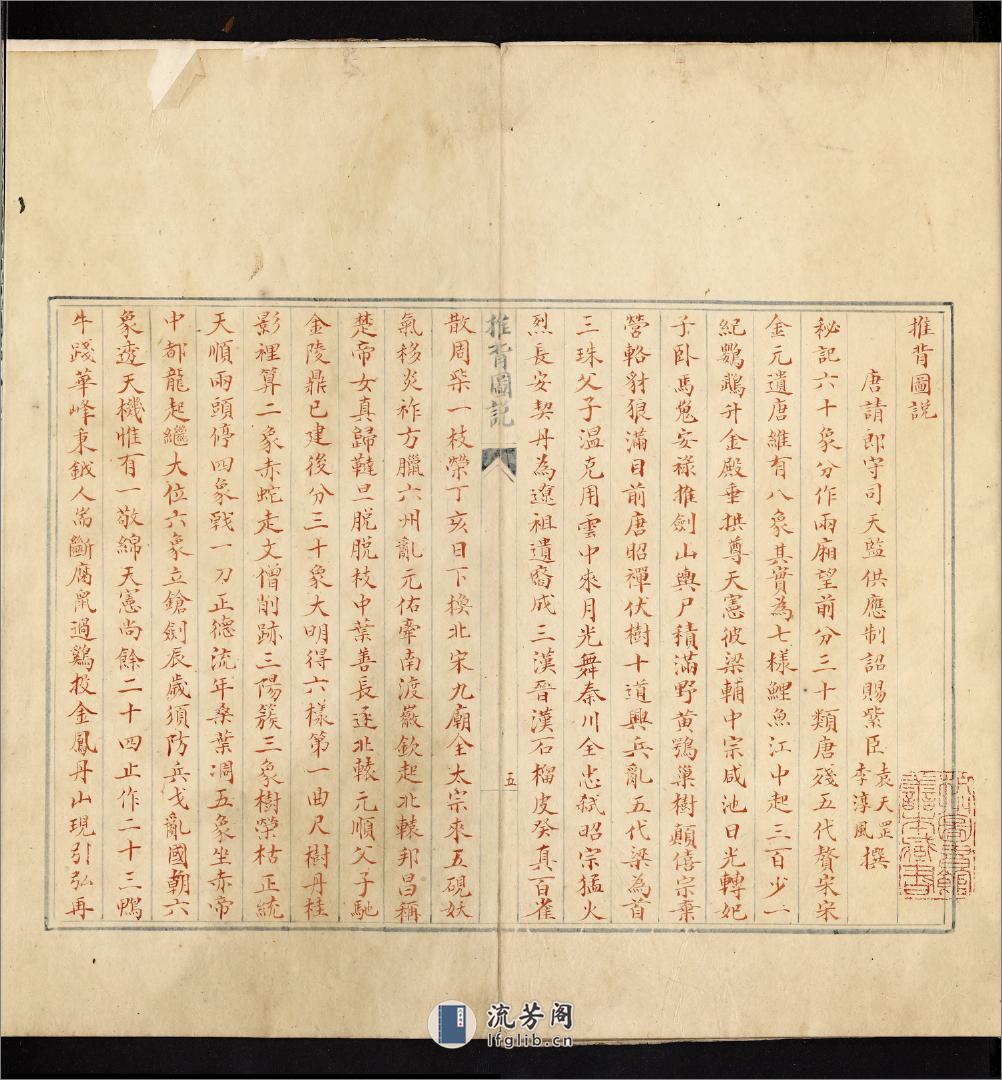 推背圖説
唐請郎守司天監供應制詔賜紫臣袁天罡李淳風撰
秘記六十象分作兩廂望前分三十類唐殘五代贅宋宋
金元遺唐維有八象其實為七樣鯉魚江中起三百少一
紀鸚鵡升金殿垂拱尊天憲彼梁輔中宗咸池日光轉妃
子卧馬嵬安禄推劍山輿尸積滿野黄鶚巢樹顛僖宗棄
營輅豺狼滿目前唐昭禪伏樹十道興兵亂五代梁為首
三珠父子温克用雲中來月光舞秦川全忠弑昭宗猛火
烈長安契丹為遼祖遺裔成三漢晉漢石榴皮癸真百雀
推背圖説
五
散周柴一枝榮丁亥日下換北宋九廟全太宗來五硯妖
氣移炎祚方臘六州亂元佑牽南渡徽欽起北轅邦昌稱
楚帝女真歸韃旦脱脱枝中葉善長逐北轅元順父子馳
金陵鼎已建後分三十象大明得六樣第一曲尺樹丹桂
影裡算二象赤蛇走文僧削跡三陽簇三象樹榮枯正統
天順兩頭停四象戰一刀正德流年桑葉凋五象坐赤帝
中都龍起繼大位六象立鎗劍辰歲須防兵戈亂國朝六
象透天機惟有一敬綿天憲尚餘二十四止作二十三鴨
牛踐華峰秉鉞人耑斷腐鼠過鷄投金鳳丹山現引弘再
流芳阁
lfglib.cn